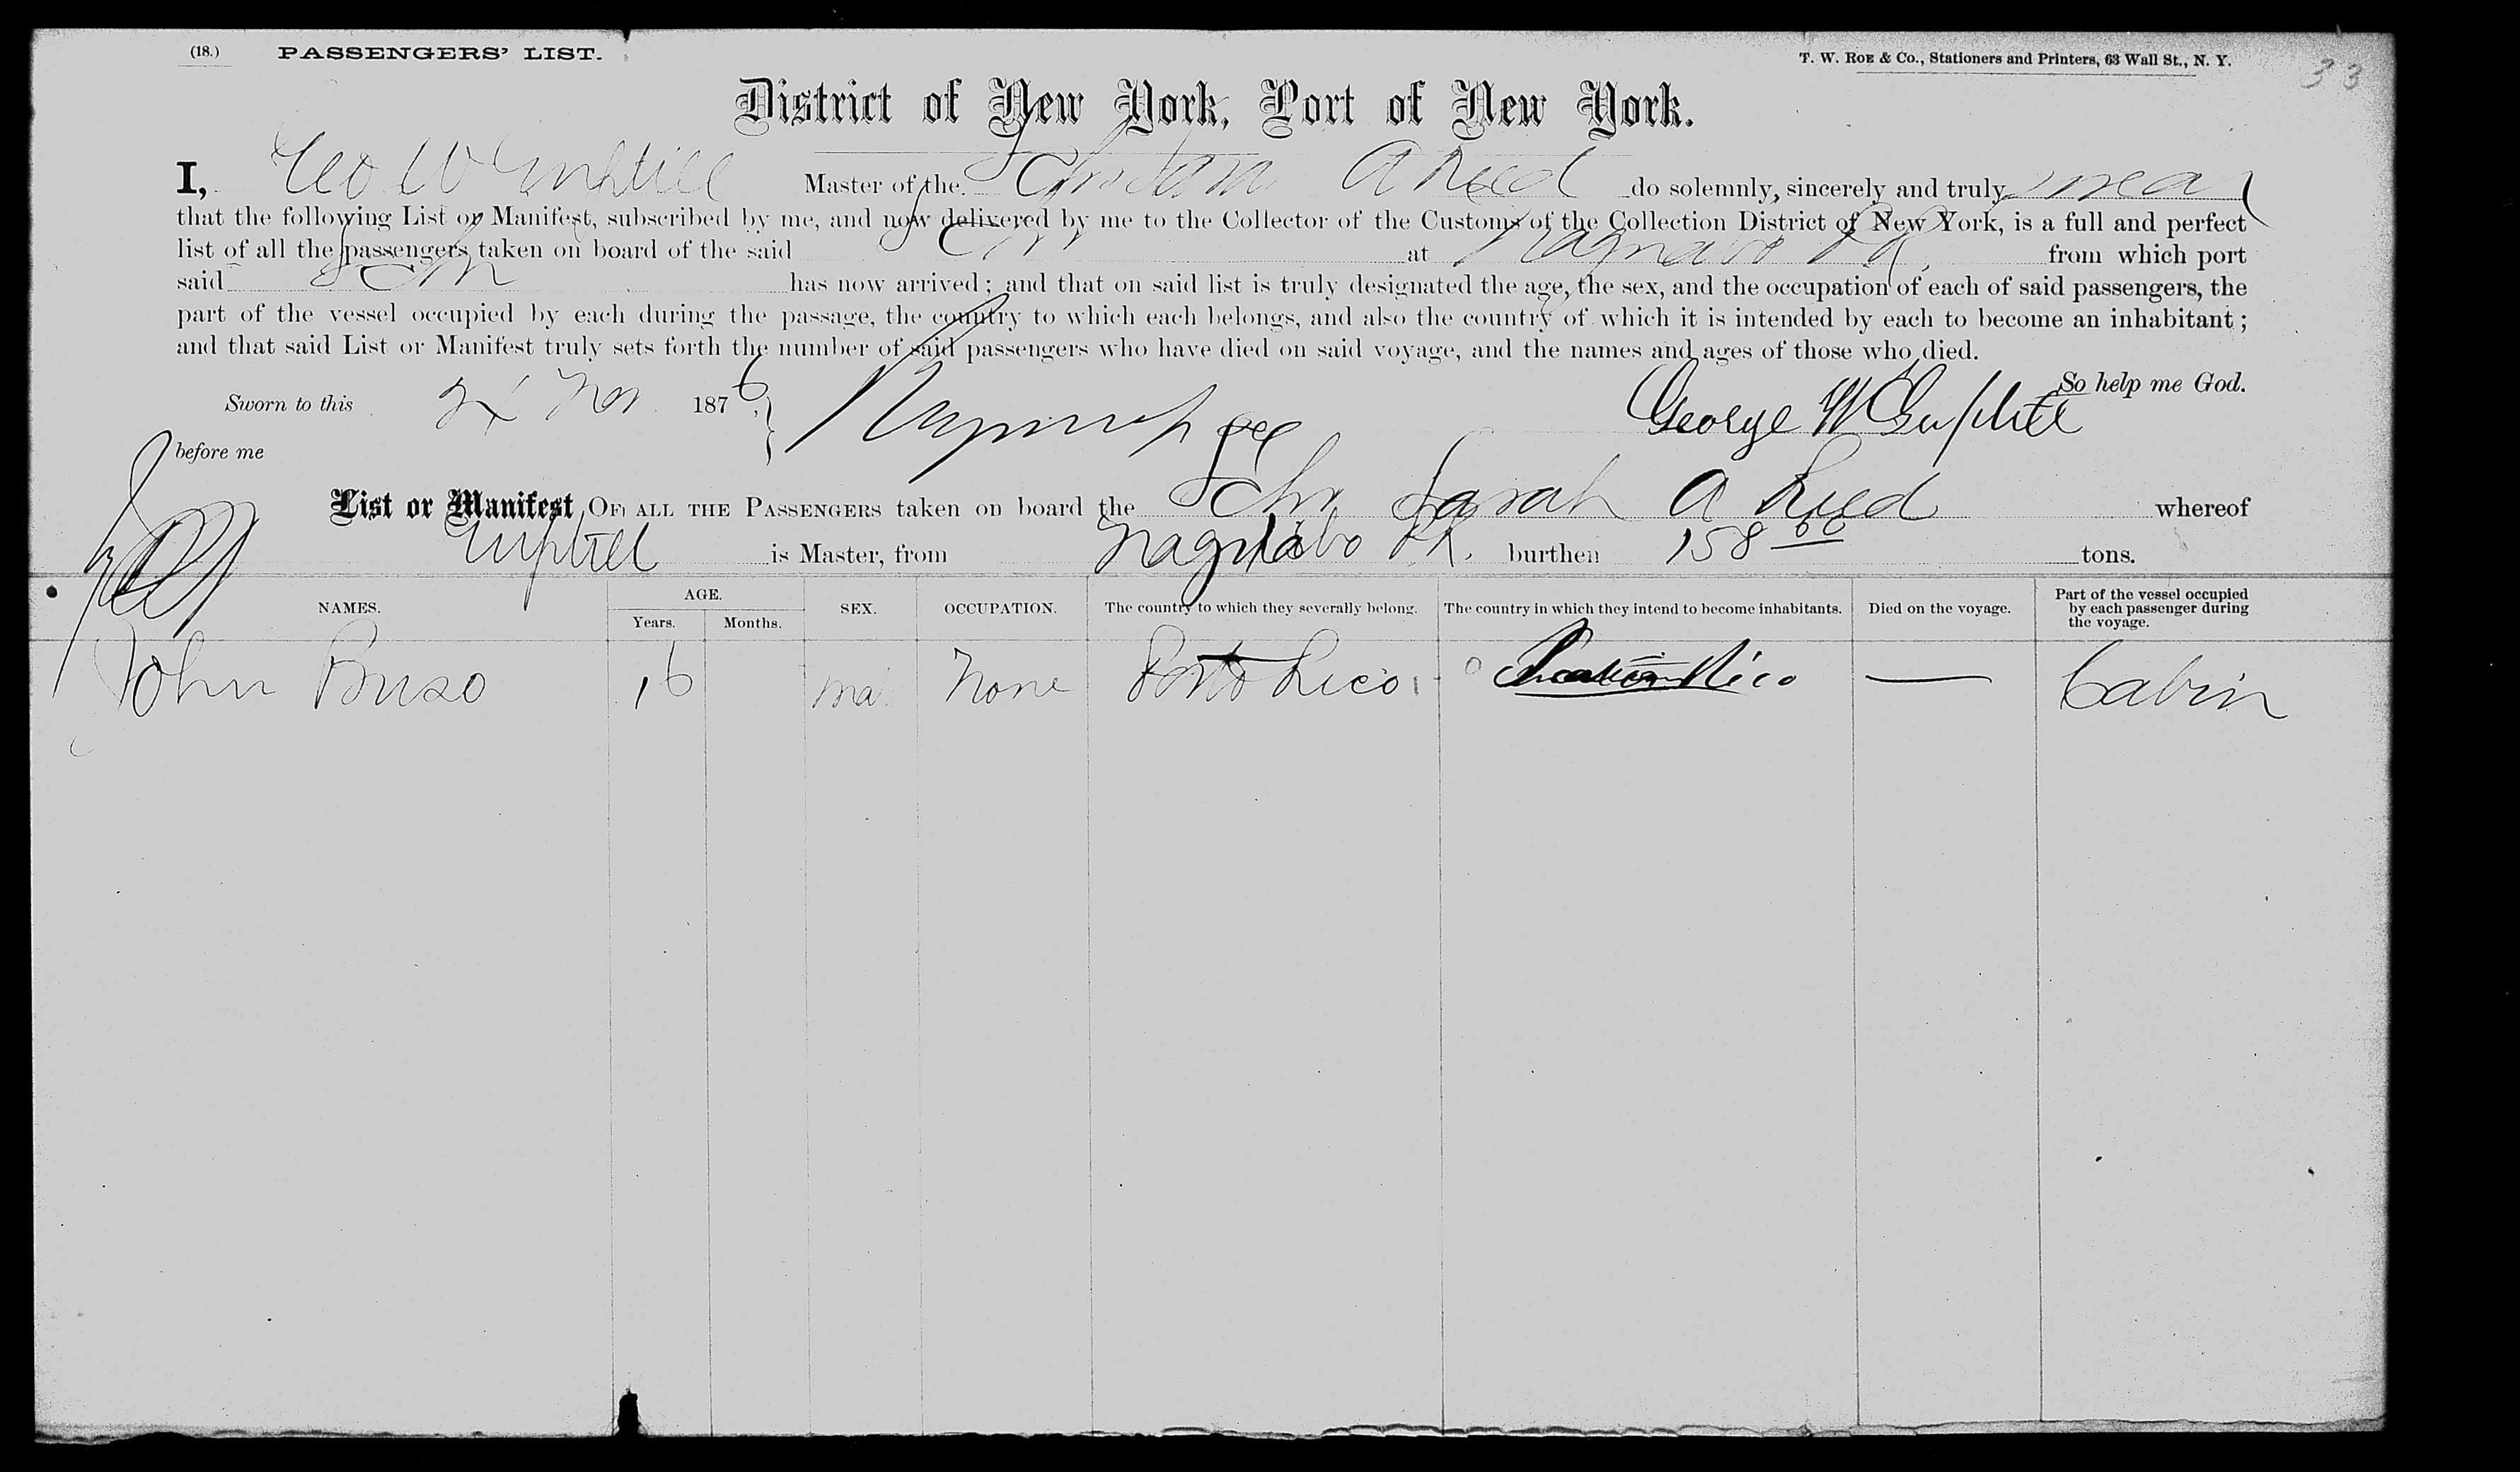 (18.) PASSENGERS' LIST. T. W. ROE & Co., Stationers and Printers, 63 Wall St., N. Y. 33
District of New York, Port of New York.
I, Geo W Guptill Master of the Schr Sarah A Reed do solemnly, sincerely and truly swear
that the following List or Manifest, subscribed by me, and now delivered by me to the Collector of the Customs of the Collection District of New York, is a full and perfect
list of all the passengers taken on board of the said Schr at Naguabo PR. from which port
said Schr has now arrived; and that on said list is truly designated the age, the sex, and the occupation of each of said passengers, the
part of the vessel occupied by each during the passage, the country to which each belongs, and also the country of which it is intended by each to become an inhabitant;
and that said List or Manifest truly sets forth the number of said passengers who have died on said voyage, and the names and ages of those who died.
So help me God.
Sworn to this Nov 1876 George W Guptill
before me
List or Manifest OF ALL THE PASSENGERS taken on board the Schr Sarah A Reed whereof
Guptill is Master, from Naguabo PR. burthen 158 tons.
NAMES. AGE. Years. Months. SEX. OCCUPATION. The country to which they severally belong. The country in which they intend to become inhabitants. Died on the voyage. Part of the vessel occupied by each passenger during the voyage.
John Buso 16 ma. None Porto Rico Rico — Cabin